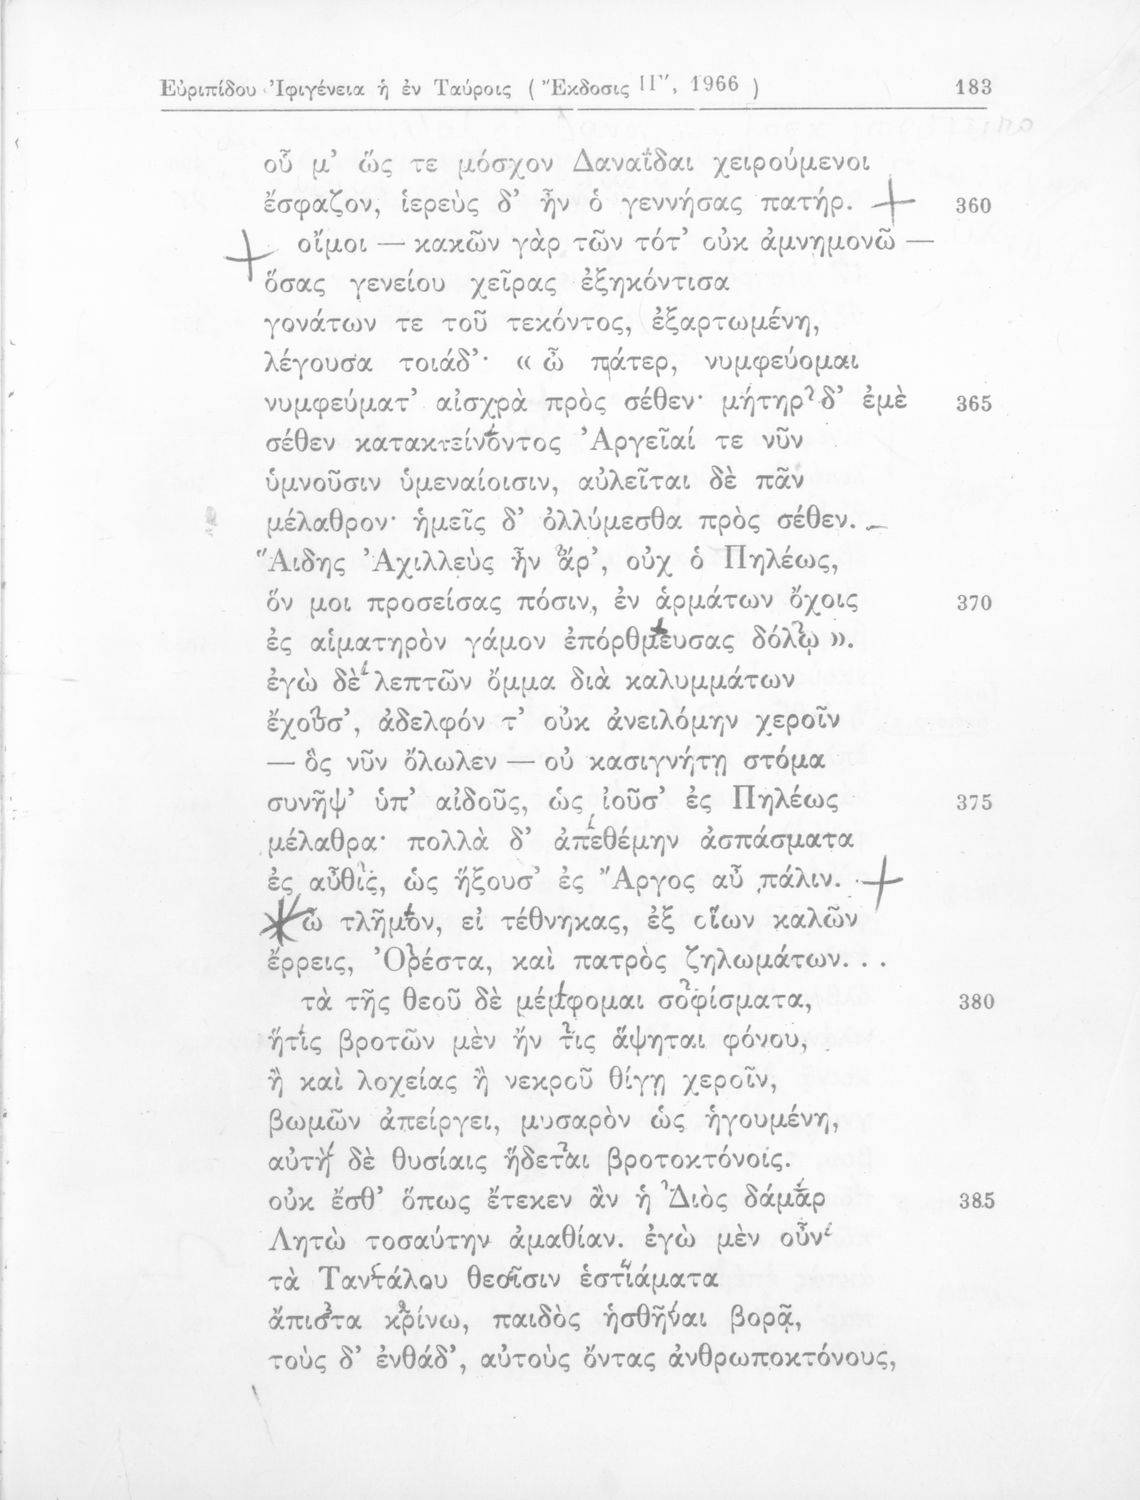 Εὐριπίδου Ἰφιγένεια ἡ ἐν Ταύροις ( Ἔκδοσις Π", 1966 ) 183
οὗ μ' ὥς τε μόσχον Δαναΐδαι χειρούμενοι
ἔσφαζον, ἱερεὺς δ' ἦν ὁ γεννήσας πατήρ. 360
οἴμοι — κακῶν γὰρ τῶν τότ' οὐκ ἀμνημονῶ —
ὅσας γενείου χεῖρας ἐξηκόντισα
γονάτων τε τοῦ τεκόντος, ἐξαρτωμένη,
λέγουσα τοιάδ'· « ὦ πάτερ, νυμφεύομαι
νυμφεύματ' αἰσχρὰ πρὸς σέθεν· μήτηρ δ' ἐμὲ 365
σέθεν κατακτείνοντος Ἀργεῖαί τε νῦν
ὑμνοῦσιν ὑμεναίοισιν, αὐλεῖται δὲ πᾶν
μέλαθρον· ἡμεῖς δ' ὀλλύμεσθα πρὸς σέθεν.
Ἅιδης Ἀχιλλεὺς ἦν ἄρ', οὐχ ὁ Πηλέως,
ὅν μοι προσείσας πόσιν, ἐν ἁρμάτων ὄχοις 370
ἐς αἱματηρὸν γάμον ἐπόρθμευσας δόλῳ ».
ἐγὼ δὲ λεπτῶν ὄμμα διὰ καλυμμάτων
ἔχουσ', ἀδελφόν τ' οὐκ ἀνειλόμην χεροῖν
— ὃς νῦν ὄλωλεν — οὐ κασιγνήτῃ στόμα
συνῆψ' ὑπ' αἰδοῦς, ὡς ἰοῦσ' ἐς Πηλέως 375
μέλαθρα· πολλὰ δ' ἀπεθέμην ἀσπάσματα
ἐς αὖθις, ὡς ἥξουσ' ἐς Ἄργος αὖ πάλιν.
ὦ τλῆμον, εἰ τέθνηκας, ἐξ οἵων καλῶν
ἔρρεις, Ὀρέστα, καὶ πατρὸς ζηλωμάτων. . .
τὰ τῆς θεοῦ δὲ μέμφομαι σοφίσματα, 380
ἥτις βροτῶν μὲν ἤν τις ἅψηται φόνου,
ἢ καὶ λοχείας ἢ νεκροῦ θίγῃ χεροῖν,
βωμῶν ἀπείργει, μυσαρὸν ὡς ἡγουμένη,
αὐτὴ δὲ θυσίαις ἥδεται βροτοκτόνοις.
οὐκ ἔσθ' ὅπως ἔτεκεν ἂν ἡ Διὸς δάμαρ 385
Λητὼ τοσαύτην ἀμαθίαν. ἐγὼ μὲν οὖν
τὰ Ταντάλου θεοῖσιν ἑστιάματα
ἄπιστα κρίνω, παιδὸς ἡσθῆναι βορᾷ,
τοὺς δ' ἐνθάδ', αὐτοὺς ὄντας ἀνθρωποκτόνους,